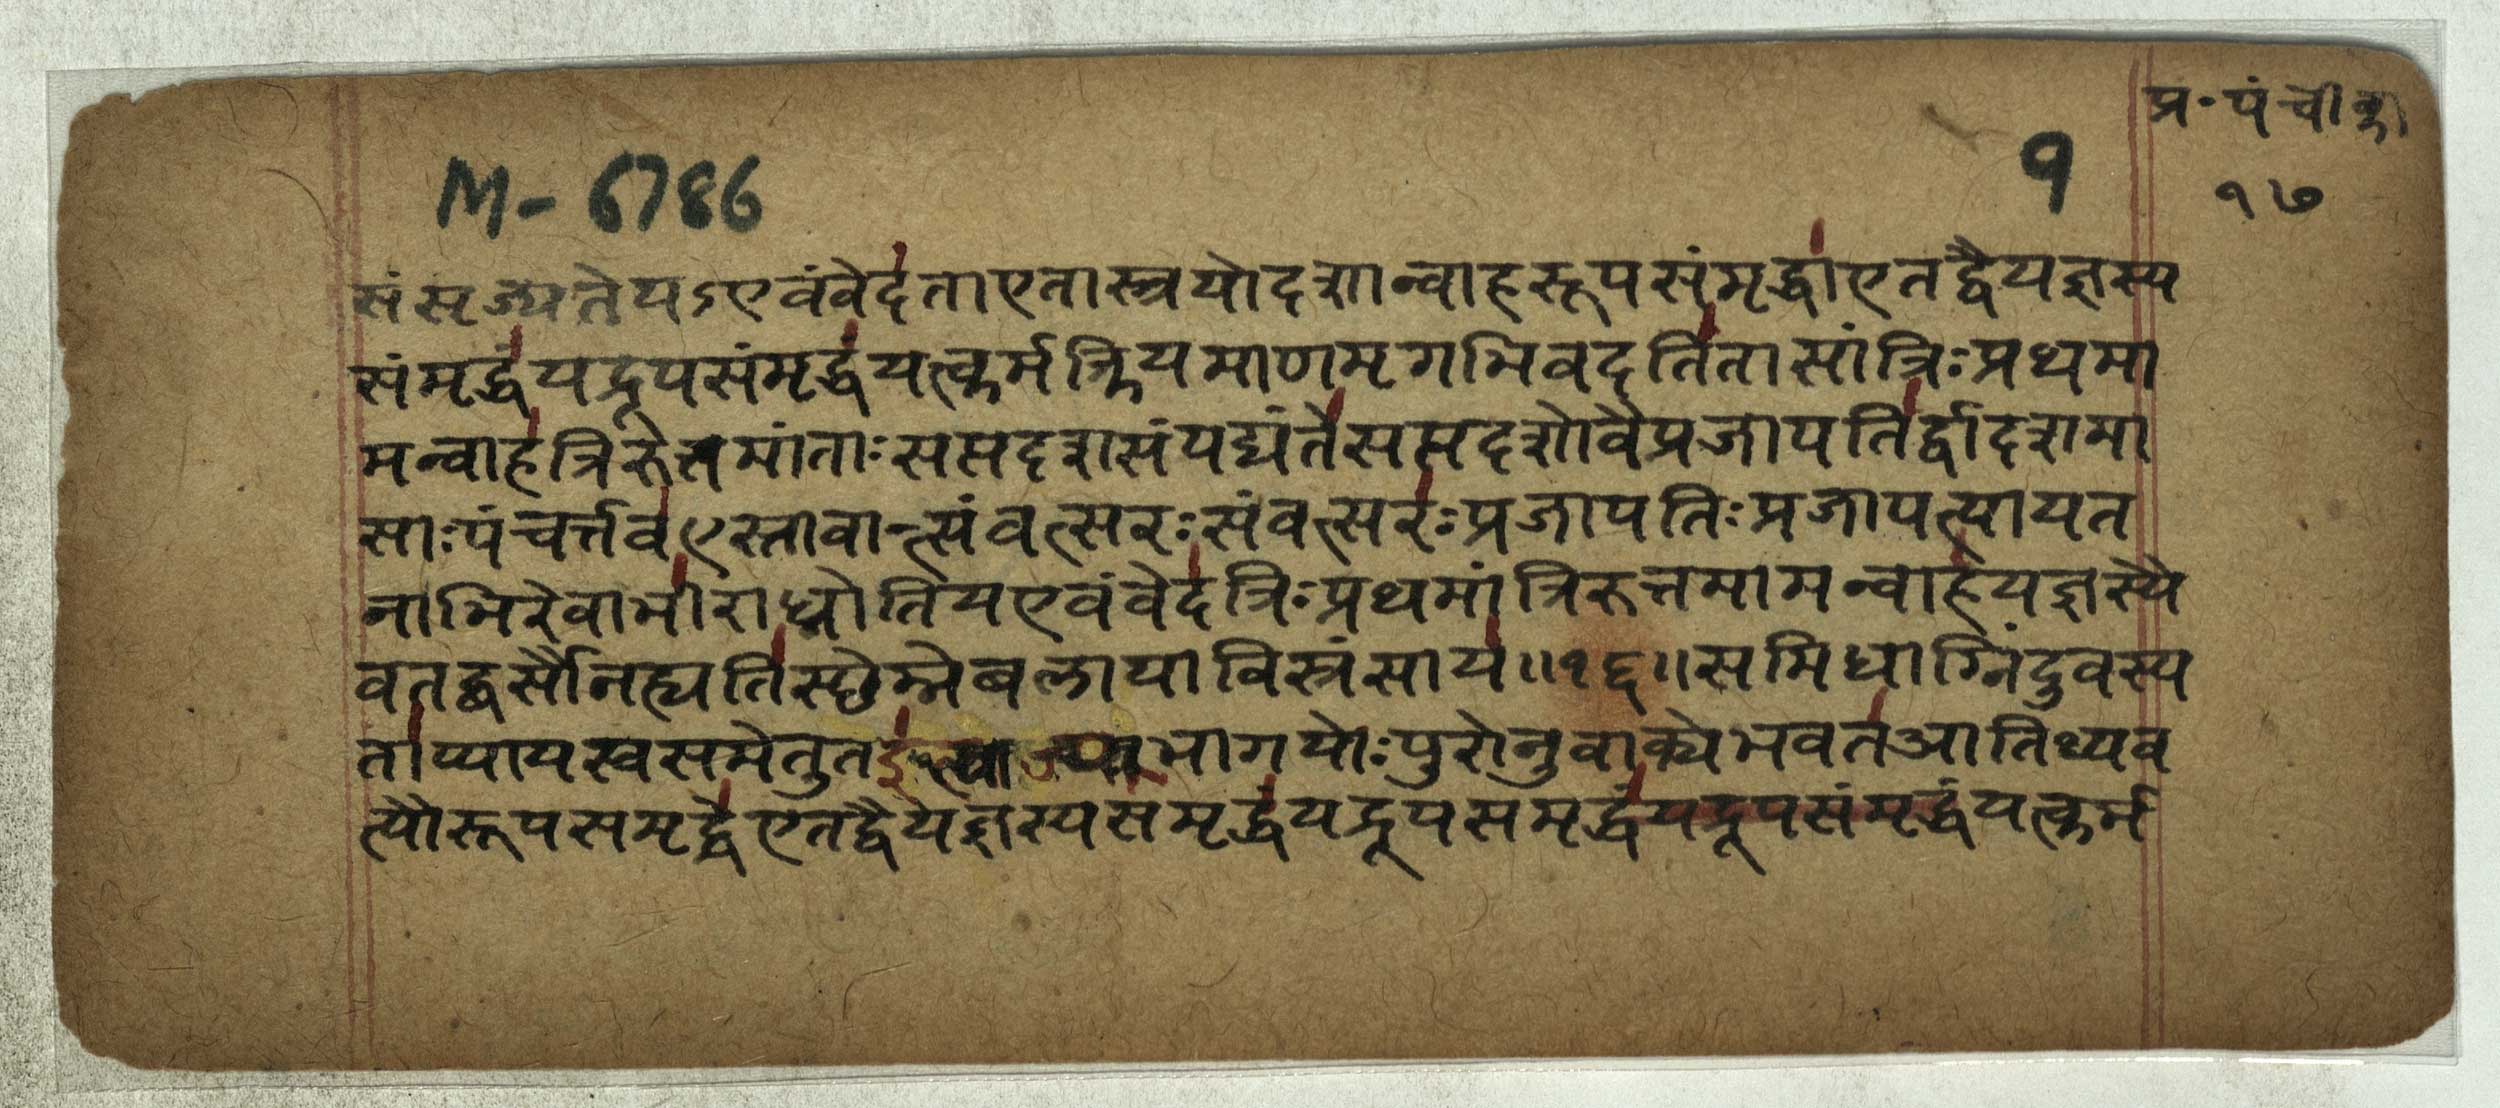 प्र॰पंचीका
M-6786
१
१७
संसृज्यतेयऽएवंवेदताएतास्त्रयोदशान्वाहरूपसंमृद्धाएतद्वैयज्ञस्य
संमृद्धंयद्रूपसंमृद्धंयत्कर्मक्रियमाणमृगभिवदतितासांत्रिःप्रथमा
मन्वाहत्रिरुत्तमांताःसप्तदशसंपद्यंतेसप्तदशोवैप्रजापतिर्द्वादशमा
साःपंचर्त्तवएस्तावान्त्संवत्सरःसंवत्सरःप्रजापतिःप्रजापत्यायत
नाभिरेवाभीराध्नोतियएवंवेदत्रिःप्रथमांत्रिरुत्तमामन्वाहयज्ञस्यै
वतद्बर्सौनह्यतिस्छेम्नेबलायाविस्त्रंसाय॥१६॥समिधाग्निंदुवस्य
ताप्यायस्वसमेतुत भागयोःपुरोनुवाक्येभवतआतिथ्यव
त्यौरूपसमृद्धेएतद्वैयज्ञस्यसमृद्धंयद्रूपसमृद्धंयद्रूपसंमृद्धंयत्कर्म